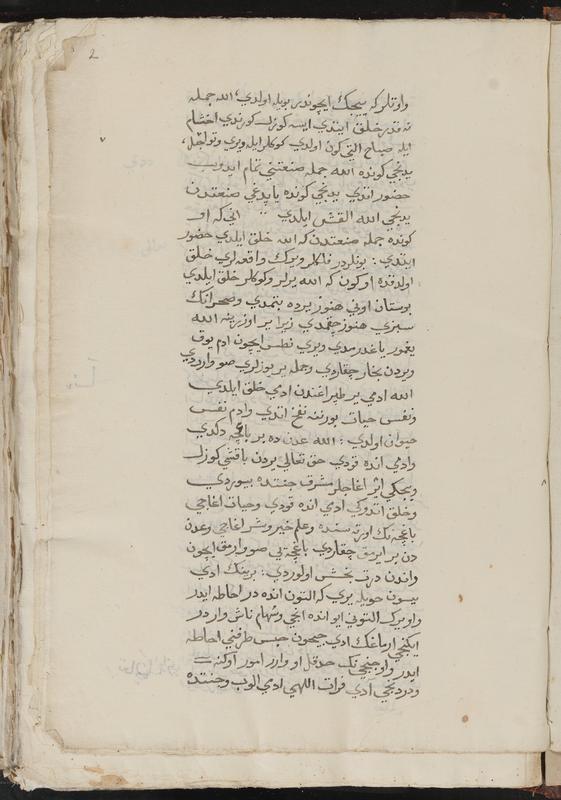 2
واوتلر كه ييجك ايچوندر بويله اولدي، الله جمله
نه قدر خلق ايتدي ايسه كوزل كورندي اخشام
ايله صباح التي كون اولدي كوكلر ايله ويري
يدنجي كونده الله جمله صنعتني تمام ايدوب
حضور اتدي يدنجي كونده ياپدغي صنعتدن
يدنجي الله القش ايلدي انيكه او
كونده جمله صنعتدن كه الله خلق ايلدي حضور
ايتدي : بونلردر فلكلر ويرك واقعه لري خلق
اولدقده او كون كه الله يرلر وكوكلر خلق ايلدي
بوستان اوتي هنوز يرده بتمدي وصحرانك
سبزي هنوز چقمدي زيرا ير اوزرينه الله
يغمور ياغدرمدي ويري نطس ايچون ادم يوق
ويردن بخار چقاردي وجمله ير يوزلري صوواردي
الله ادمي ير طپراغندن ادمي خلق ايلدي
ونفس حيات بورننه نفخ اتدي وادم نفس
حيوان اولدي : الله عدن ده بر باغچه دكدي
وادمي انده قودي حق تعالي يردن باقشي كوزل
ويجكي ايو اغاجلر مشرق جنتده بيوردي
وخلق اندوكي ادمي انده قودي وحيات اغاجي
باغچه نك اورته سنده وعلم خير وشر اغاجي وعدن
دن بر ايرمق چقاردي باغچه يي صووارمق ايچون
واندن درت بخش اولوردي : برينك ادي
بيسون حويله يري كه التون انده در احاطه ايدر
واو يرك التوني ايو انده انجي وشهام تاش واردر
ايكنجي ارماغك ادي جيحون حبس طرفني احاطه
ايدر واوچنجي نك حدقل او وارر اسور اوكنه
ودردنجي ادي فرات اللهي ادمي الوب وجنتده